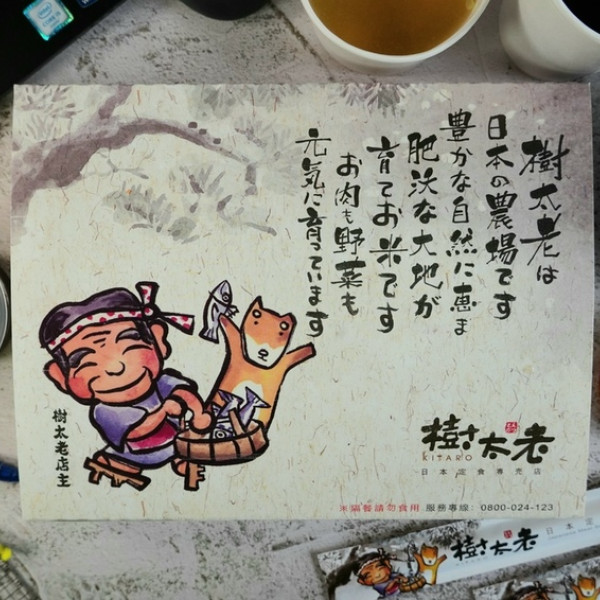 樹太老は
日本の農場です
豊かな自然に恵ま
肥沃な大地が
育てお米です
お肉も野菜も
元気に育っています
樹太老店主
樹太老
KITARO
日本定食專売店
未滿餐請勿食用 服務專線: 0800-024-123
樹太老
日本定